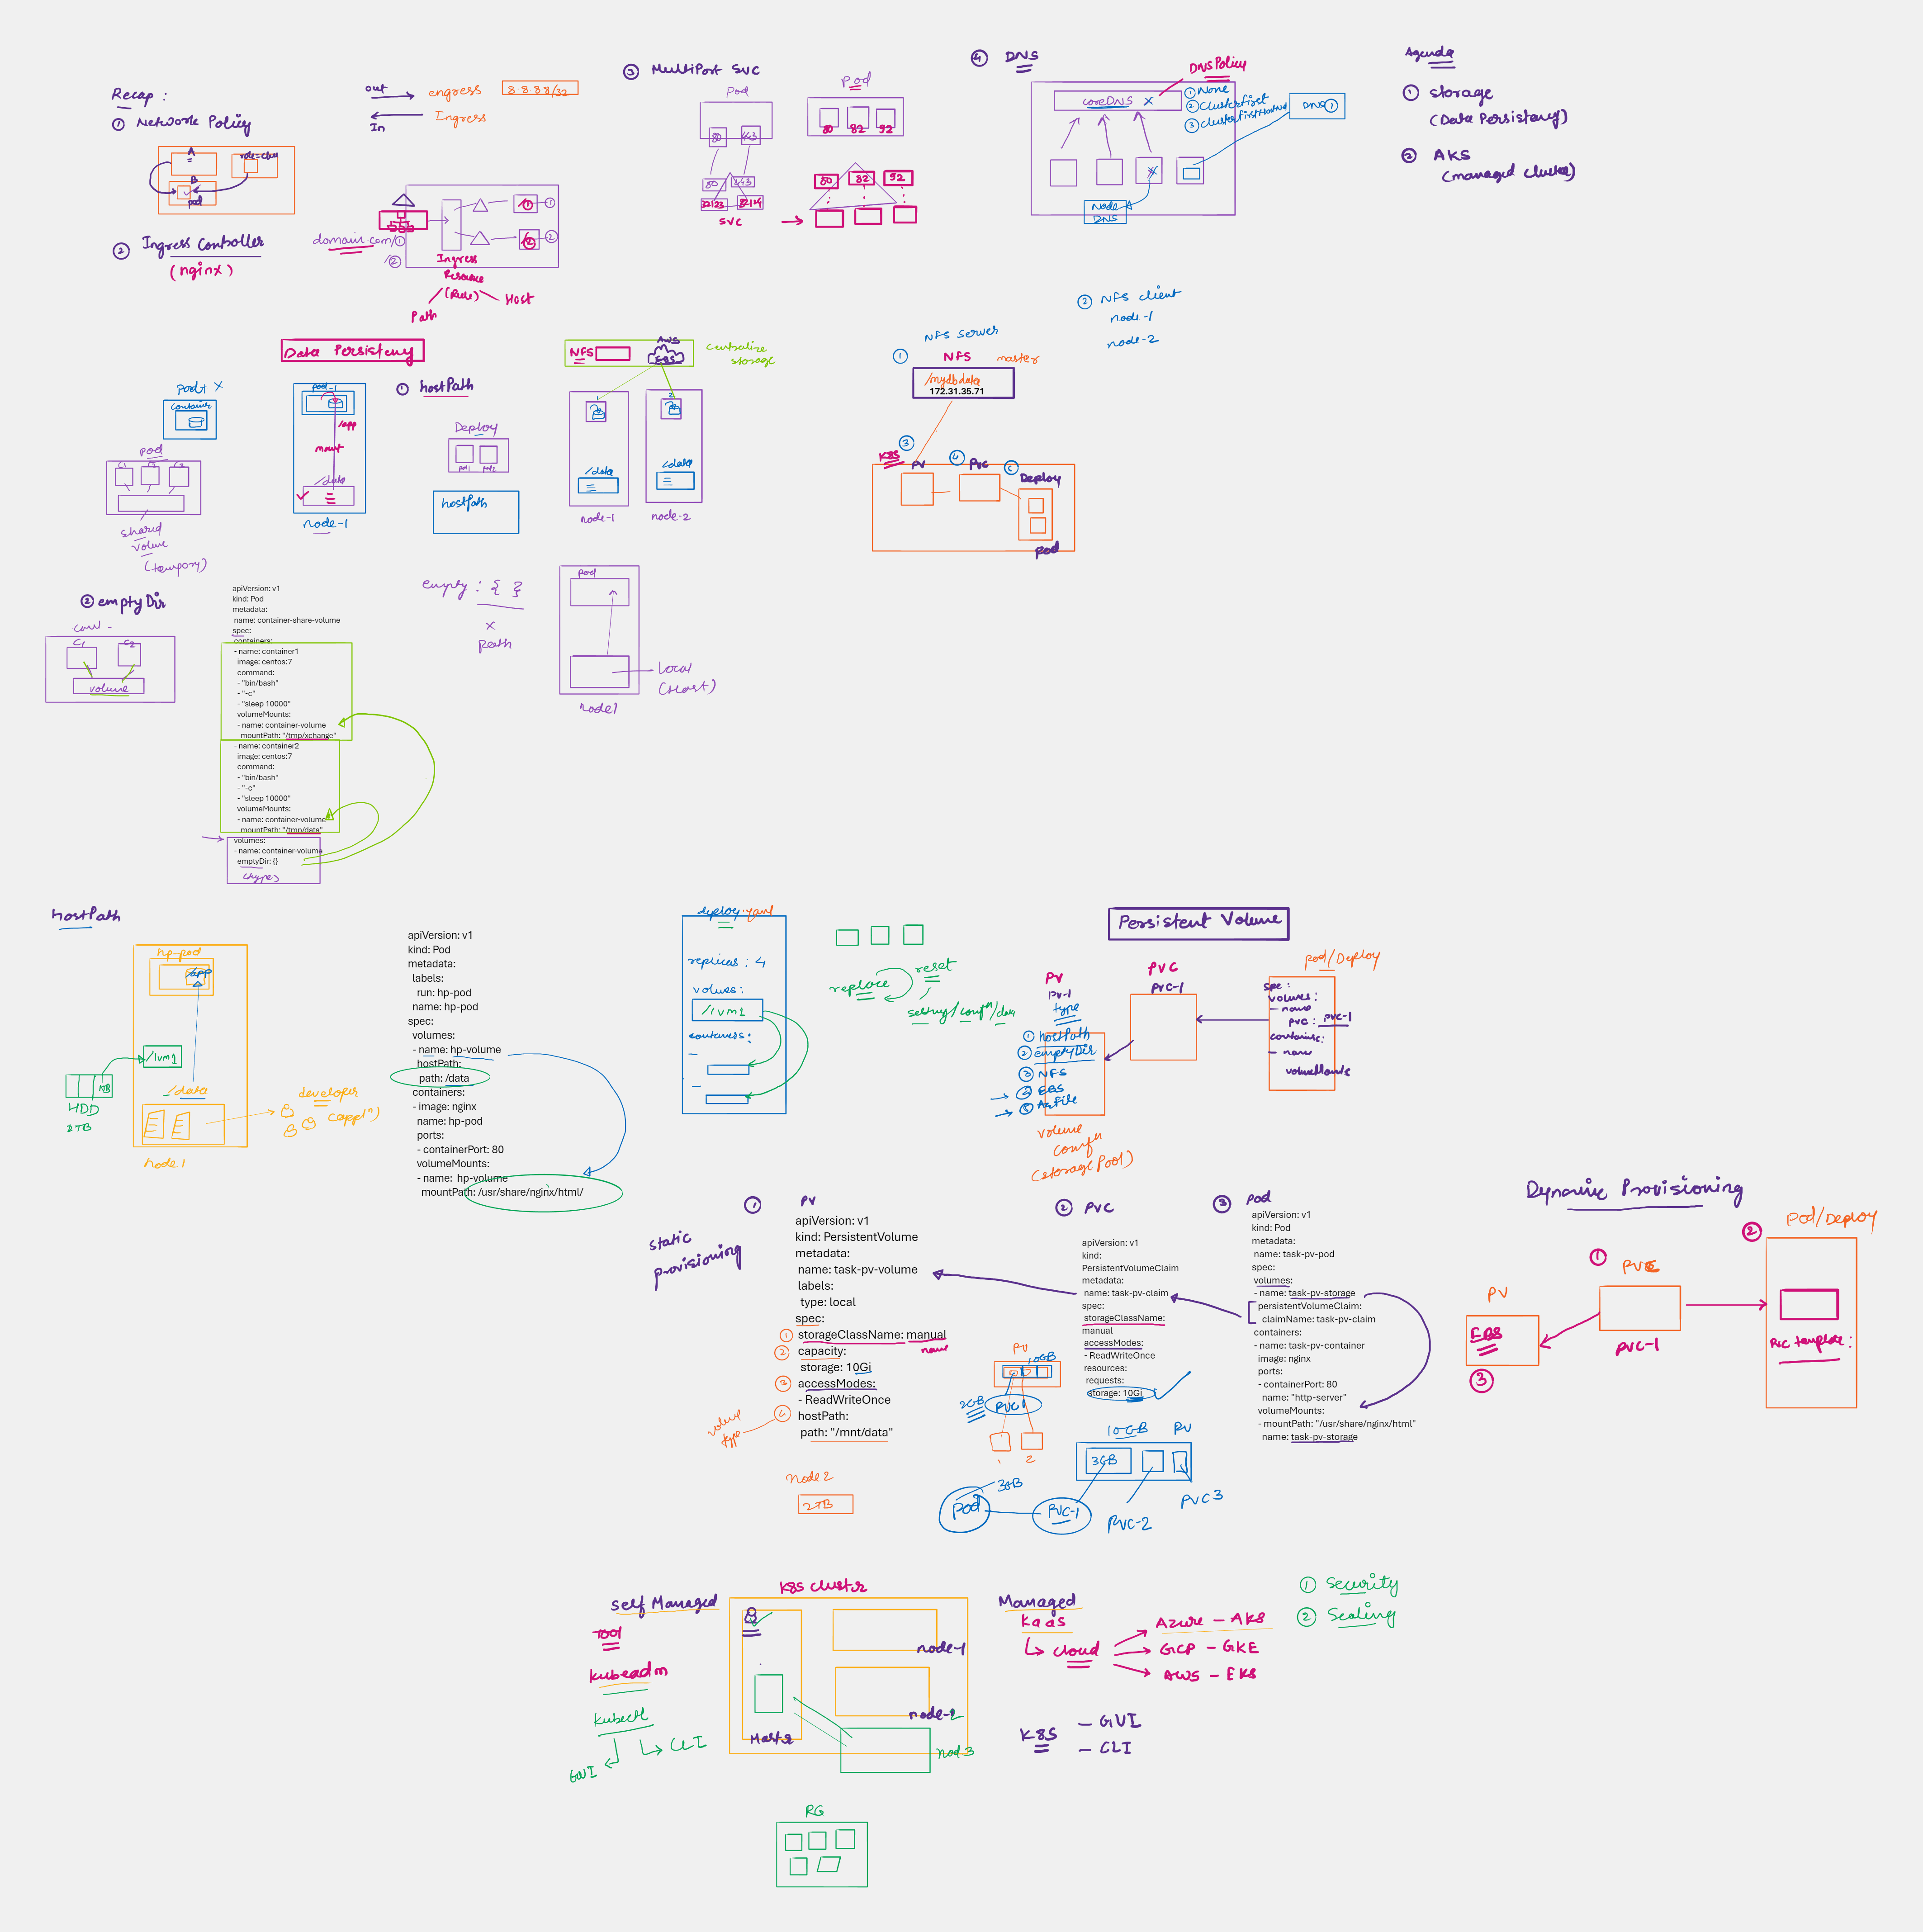 Recap :
① Network Policy
A
role=clu
B
pod
out
engress
8.8.8.8/32
Ingress
In
② Ingress Controller
(nginx)
domain.com/①
/②
①
②
Ingress
Resource
(Rule)
Path
Host
③ MultiPort SVC
Pod
80
443
80
443
32123
32124
SVC
Pod
80
82
92
80
82
92
④ DNS
DNS Policy
coreDNS x
① None
② ClusterFirst
③ ClusterFirstHostNet
DNS ①
Node
DNS
Agenda
① Storage
(Data Persistency)
② AKS
(managed cluster)
Data Persistency
Pod1 X
Container
pod
C1
C2
C3
shared
volume
(tempory)
pod-1
/app
mount
/data
node-1
① hostPath
Deploy
pod1
pod2
hostPath
NFS
AWS
EBS
Centralize
storage
/data
/data
node-1
node-2
NFS Server
① NFS
master
/mydbdata
172.31.35.71
② NFS client
node-1
node-2
③
K8S
PV
④ PVC
⑤
Deploy
pod
② emptyDir
Cont -
C1
C2
volume
apiVersion: v1
kind: Pod
metadata:
name: container-share-volume
spec:
containers:
- name: container1
image: centos:7
command:
- "bin/bash"
- "-c"
- "sleep 10000"
volumeMounts:
- name: container-volume
mountPath: "/tmp/xchange"
- name: container2
image: centos:7
command:
- "bin/bash"
- "-c"
- "sleep 10000"
volumeMounts:
- name: container-volume
mountPath: "/tmp/data"
volumes:
- name: container-volume
emptyDir: {}
(type)
empty : { }
x
path
pod
Local
(Host)
node1
hostPath
hp-pod
/app
/lvm1
1TB
HDD
2TB
/data
developer
(appln)
node1
apiVersion: v1
kind: Pod
metadata:
labels:
run: hp-pod
name: hp-pod
spec:
volumes:
- name: hp-volume
hostPath:
path: /data
containers:
- image: nginx
name: hp-pod
ports:
- containerPort: 80
volumeMounts:
- name: hp-volume
mountPath: /usr/share/nginx/html/
deploy.yaml
replicas : 4
volumes :
/lvm1
containers :
-
-
replace
reset
setting/confn/data
Persistent Volume
PV
PV-1
type
① hostPath
② emptyDir
③ NFS
④ EBS
⑤ AzFile
volume
confn
(storage Pool)
PVC
PVC-1
pod/Deploy
spec :
volumes :
- name
PVC : PVC-1
containers :
- name
volumeMounts
static
provisioning
① PV
apiVersion: v1
kind: PersistentVolume
metadata:
name: task-pv-volume
labels:
type: local
spec:
① storageClassName: manual
name
② capacity:
storage: 10Gi
③ accessModes:
- ReadWriteOnce
④ hostPath:
path: "/mnt/data"
volume
type
node2
2TB
② PVC
apiVersion: v1
kind:
PersistentVolumeClaim
metadata:
name: task-pv-claim
spec:
storageClassName:
manual
accessModes:
- ReadWriteOnce
resources:
requests:
storage: 10Gi
PV
10GB
2GB
PVC1
1
2
10GB
PV
3GB
3GB
Pod
PVC-1
PVC-2
PVC3
③ Pod
apiVersion: v1
kind: Pod
metadata:
name: task-pv-pod
spec:
volumes:
- name: task-pv-storage
persistentVolumeClaim:
claimName: task-pv-claim
containers:
- name: task-pv-container
image: nginx
ports:
- containerPort: 80
name: "http-server"
volumeMounts:
- mountPath: "/usr/share/nginx/html"
name: task-pv-storage
Dynamic Provisioning
PV
EBS
③
①
PVC
PVC-1
②
Pod/Deploy
PVC template :
Self Managed
Tool
kubeadm
kubectl
GUI
CLI
K8S cluster
Master
node-1
node-2
nod3
Managed
KaaS
cloud
Azure - AKS
GCP - GKE
AWS - EKS
K8S
- GUI
- CLI
① Security
② Scaling
RG